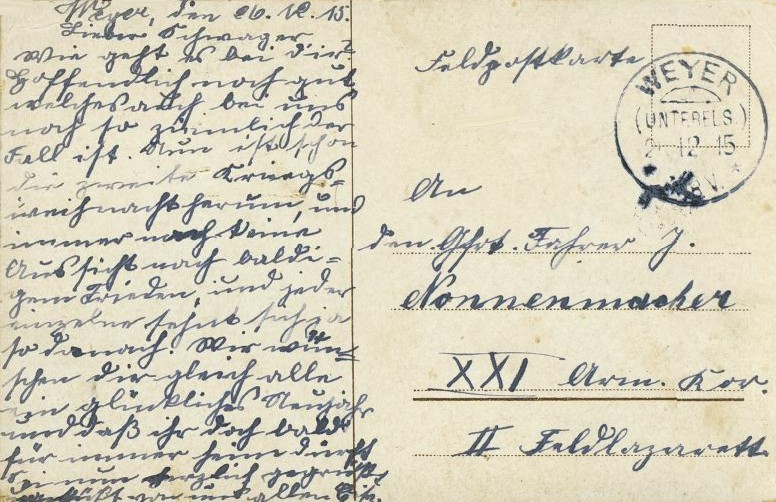 Weyer, den 26.12.15.
Lieber Schwager
Wie geht es bei dir?
Hoffendlich noch gut
welches auch bei uns
noch so zimmlich der
Fall ist. Nun ist schon
die zweite Kriegs-
weihnacht herum, und
immer noch keine
Aussicht nach baldi-
gem Frieden, und jeder
einzelne sehnt sich ja
so danach. Wir wün-
schen dir gleich alle
ein glückliches Neujahr
und daß ihr doch bald
für immer heim dürft
Sei nun herzlich gegrüßt
von uns allen
Feldpostkarte
WEYER
(UNTERELS.)
12 15
V.
An
den Gfrt. Fahrer J.
Nonnenmacher
XXI Arm. Kor.
II Feldlazarett